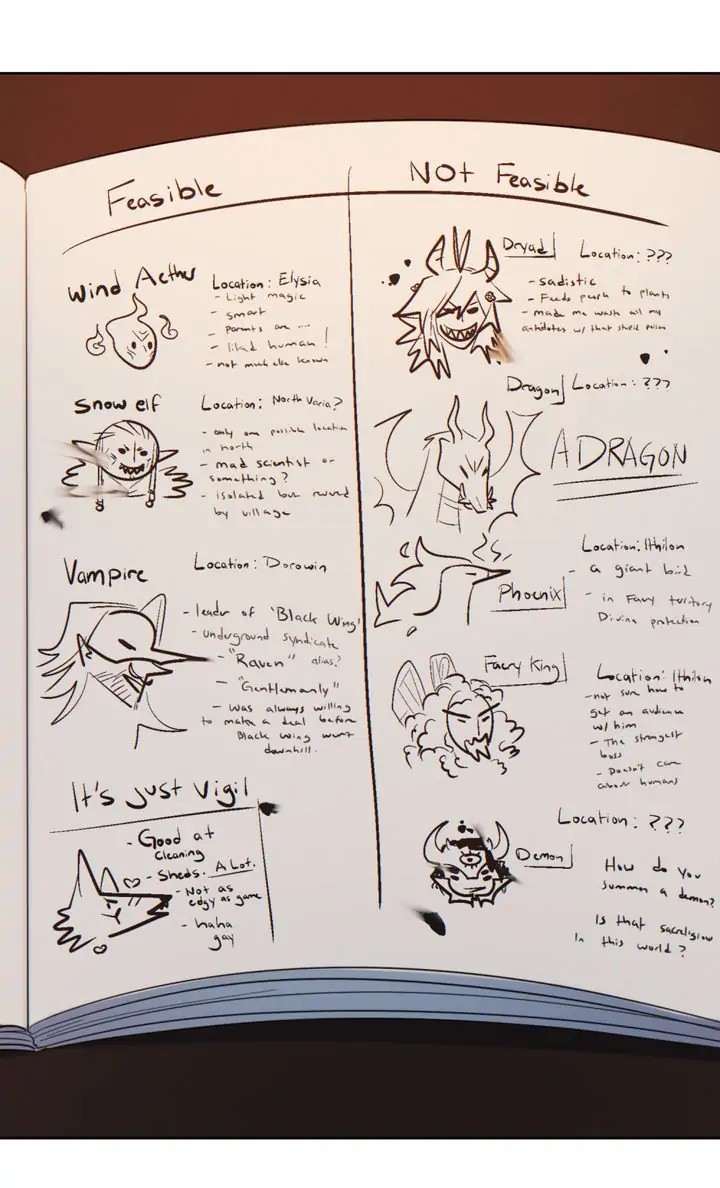 Feasible
Wind Aether
Location: Elysia
- Light magic
- smart
- parents are ...
- liked human!
- not much else known
Snow elf
Location: North Varia?
- only one possible location
in north
- mad scientist or
something?
- isolated but revered
by village
Vampire
Location: Dorowin
- leader of 'Black Wing'
- underground syndicate
- "Raven" alias?
- "Gentlemanly"
- was always willing
to make a deal before
Black wing went
downhill.
It's just Vigil
- Good at
cleaning
- Sheds. A Lot.
- Not as
edgy as game
- haha
gay
Not Feasible
Dryad
Location: ???
- sadistic
- Feeds people to plants
- made me waste all my
antidotes w/ that stupid poison
Dragon
Location: ???
A DRAGON
Phoenix
Location: Ithilon
- a giant bird
- in Faery territory
Divine protection
Faery King
Location: Ithilon
- not sure how to
get an audience
w/ him
- The strongest
boss
- Doesn't care
about humans
Demon
Location: ???
How do you
summon a demon?
Is that sacreligiow
in this world?